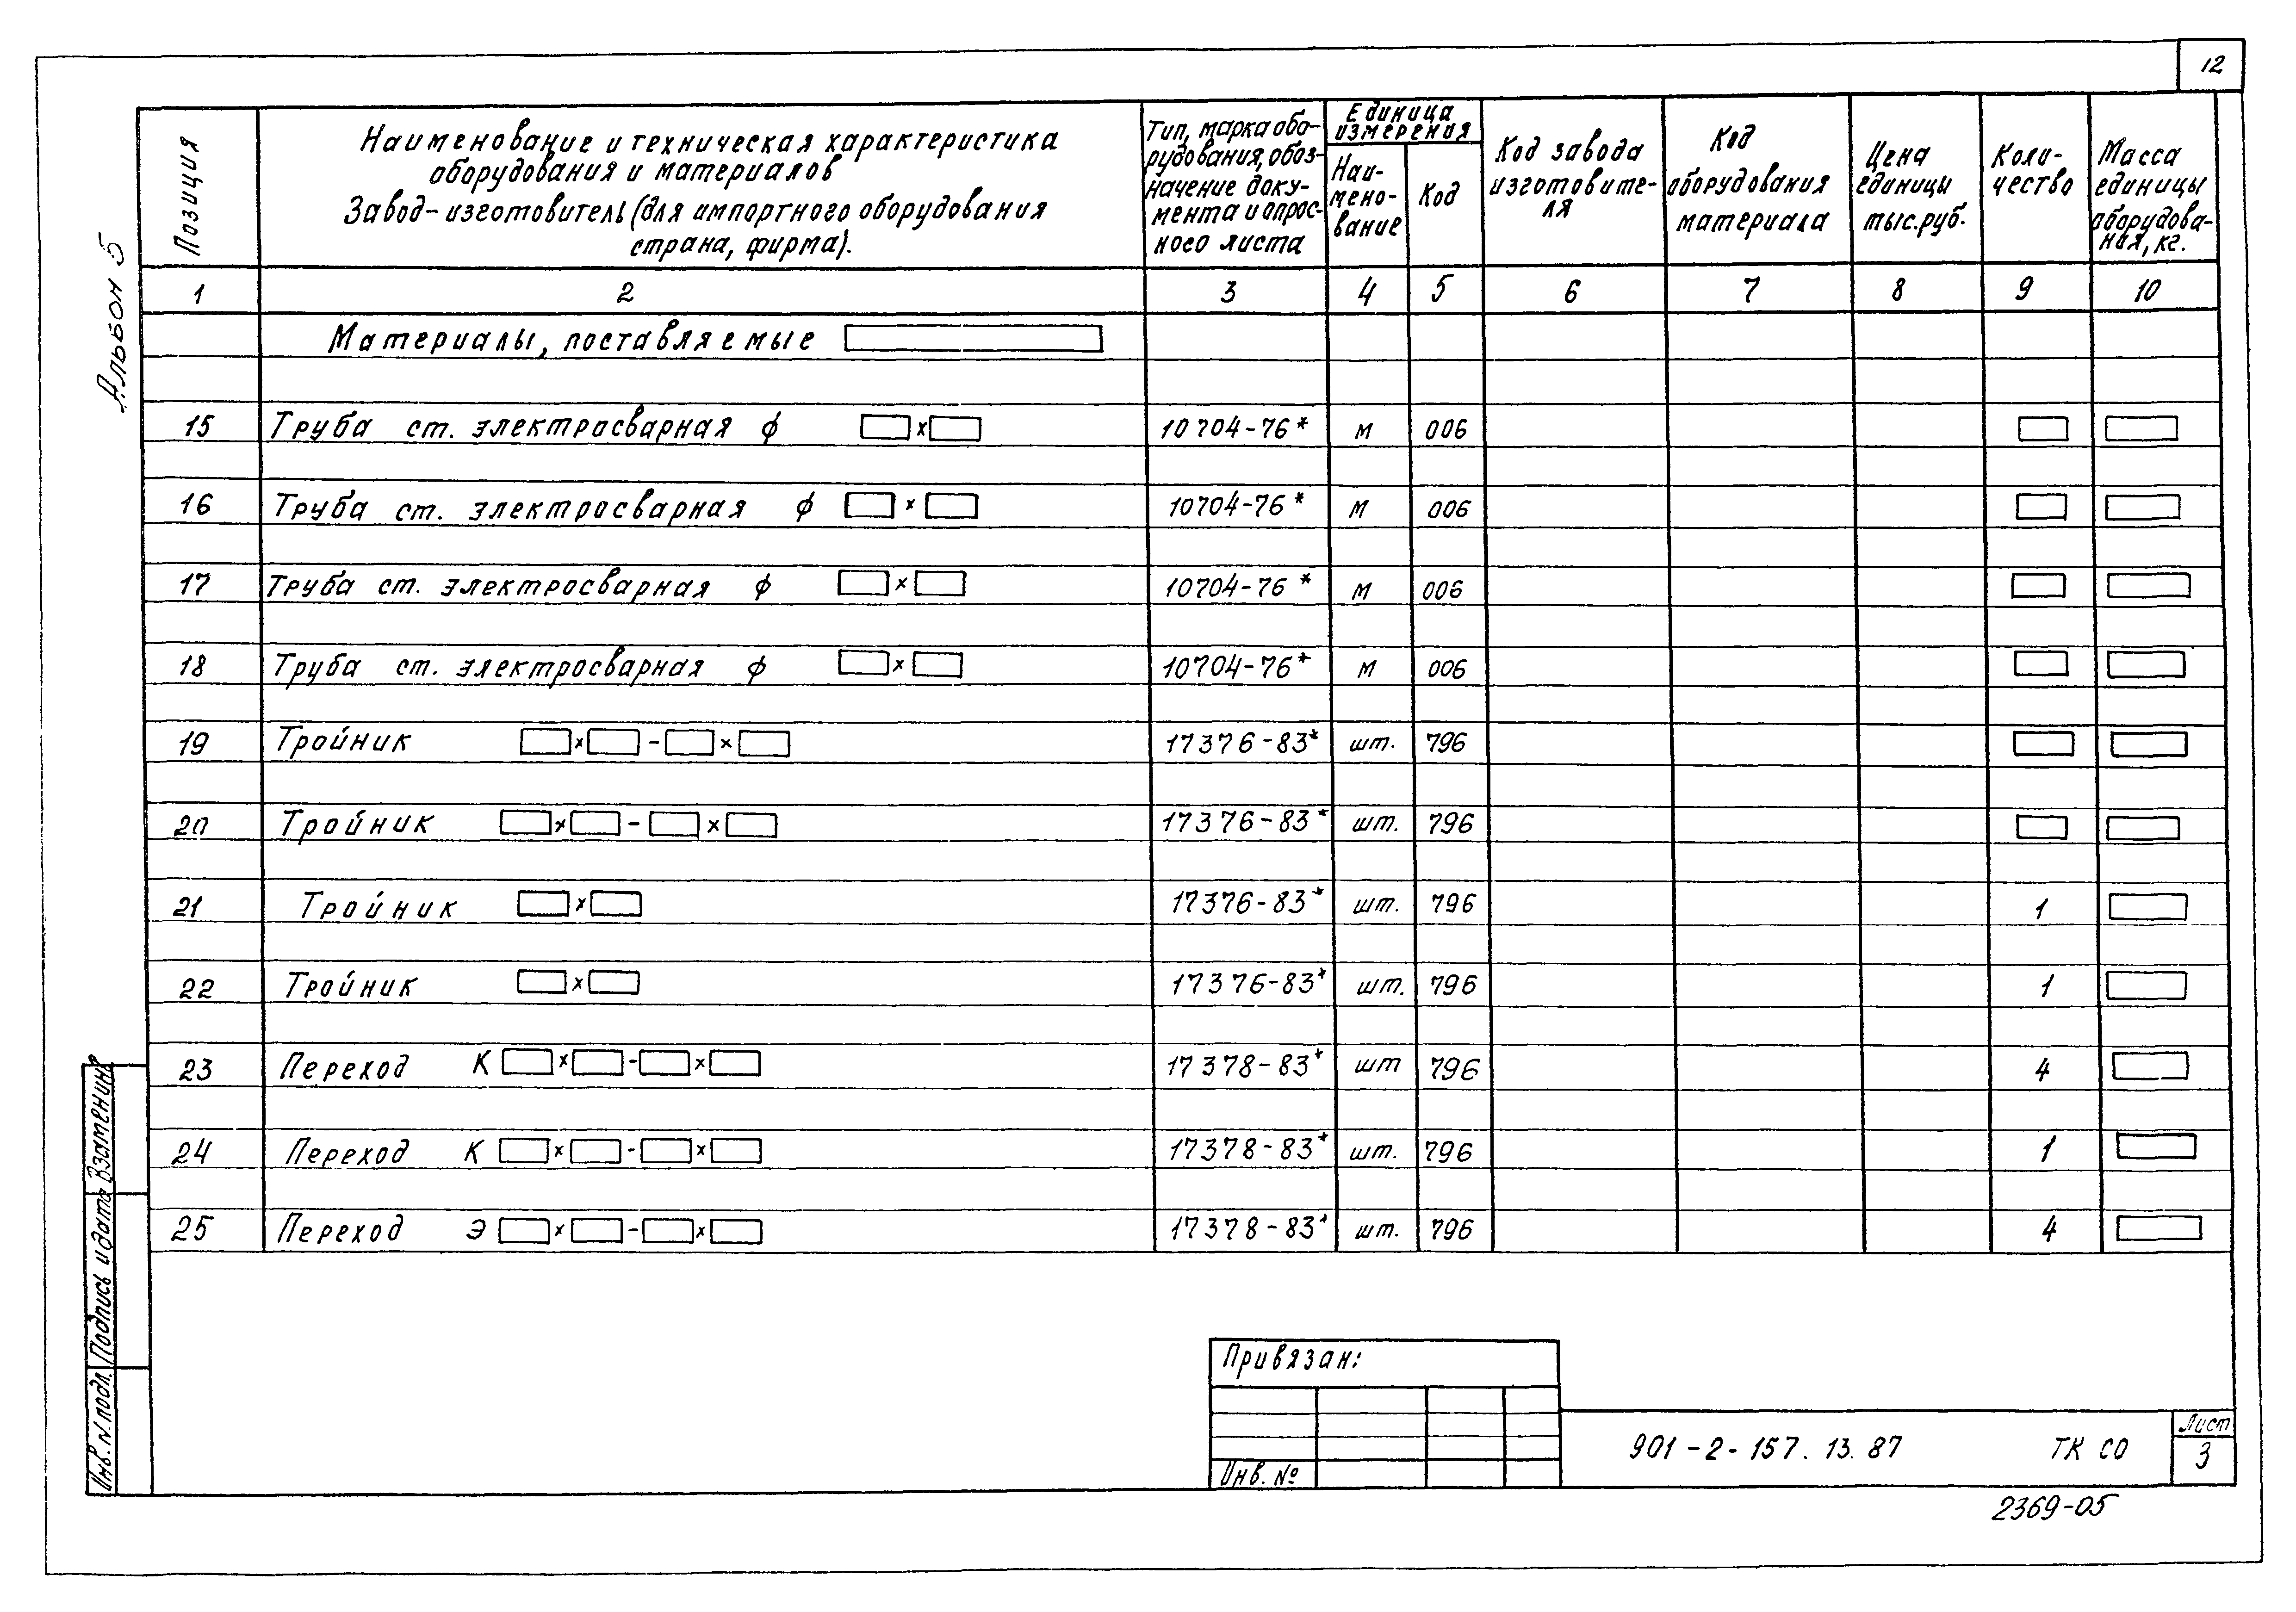 12
Альбом 5
Позиция
Наименование и техническая характеристика
оборудования и материалов
Завод-изготовитель (для импортного оборудования
страна, фирма).
Тип, марка обо-
рудования, обоз-
начение доку-
мента и опрос-
ного листа
Единица
измерения
Наи-
мено-
вание
Код
Код завода
изготовите-
ля
Код
оборудования
материала
Цена
единицы
тыс. руб.
Коли-
чество
Масса
единицы
оборудова-
ния, кг.
1 2 3 4 5 6 7 8 9 10
Материалы, поставляемые
15 Труба ст. электросварная ф × 10704-76* м 006
16 Труба ст. электросварная ф × 10704-76* м 006
17 Труба ст. электросварная ф × 10704-76* м 006
18 Труба ст. электросварная ф × 10704-76* м 006
19 Тройник × - × 17376-83* шт. 796
20 Тройник × - × 17376-83* шт. 796
21 Тройник × 17376-83* шт. 796 1
22 Тройник × 17376-83* шт. 796 1
23 Переход К × - × 17378-83* шт 796 4
24 Переход К × - × 17378-83* шт. 796 1
25 Переход Э × - × 17378-83* шт. 796 4
Инв. N подл. Подпись и дата Взамен инв
Привязан:
Инв. №
901-2-157.13.87 ТК СО
Лист
3
2369-05